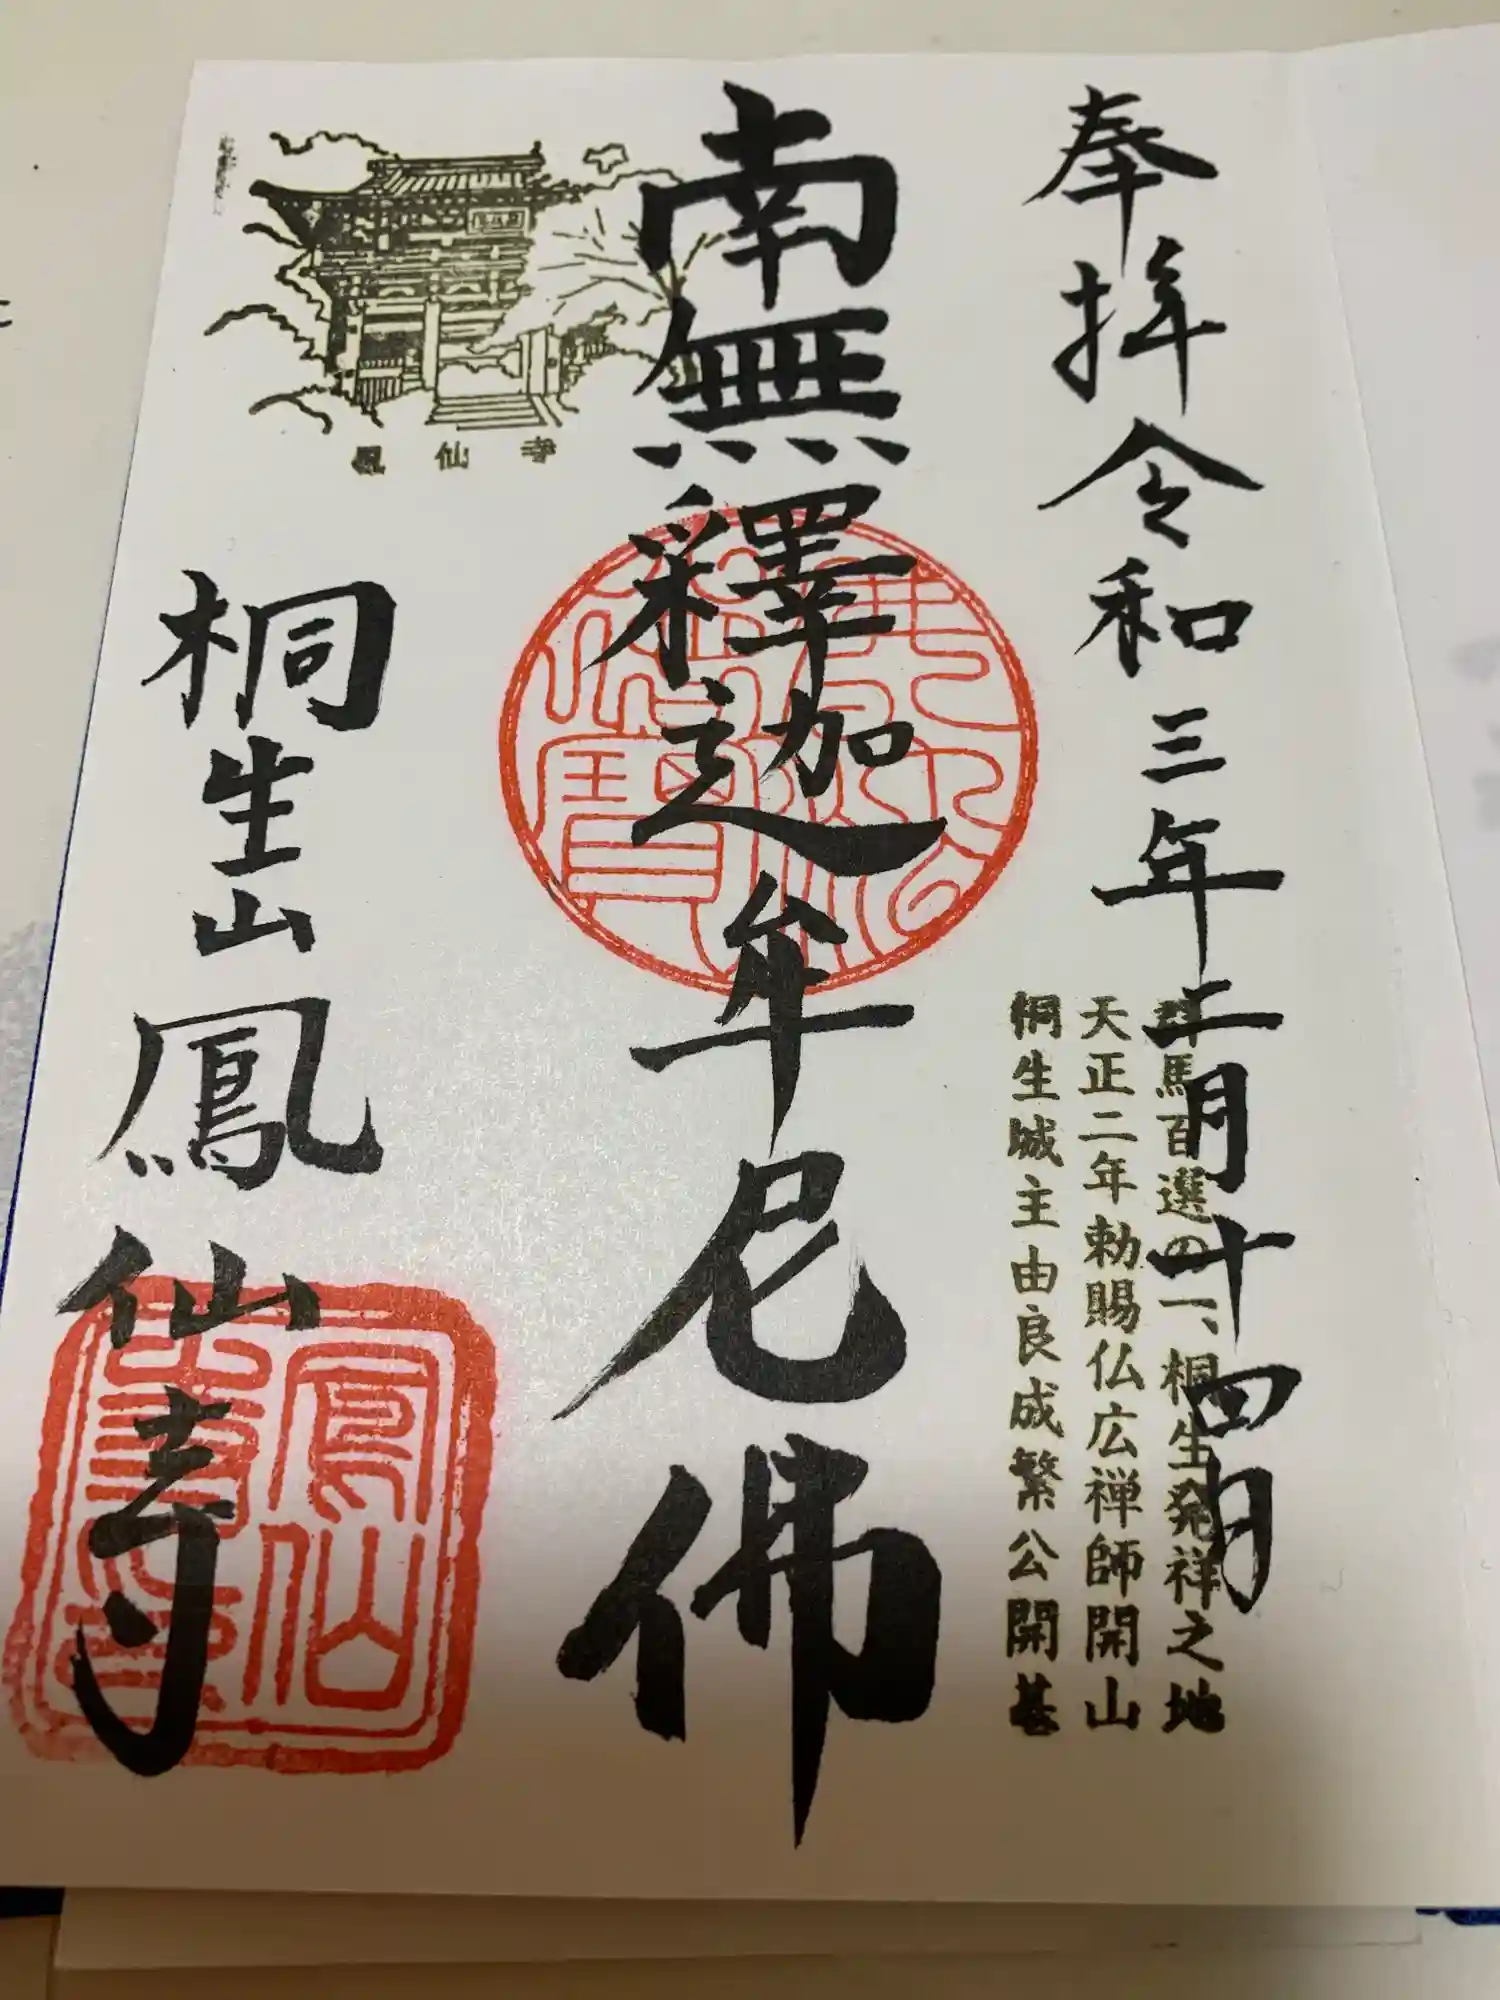 奉拝令和三年二月十四日
群馬百選の一、桐生発祥之地
天正二年勅賜仏広禅師開山
桐生城主由良成繁公開基
南無釋迦牟尼佛
鳳仙寺
桐生山鳳仙寺
鳳仙